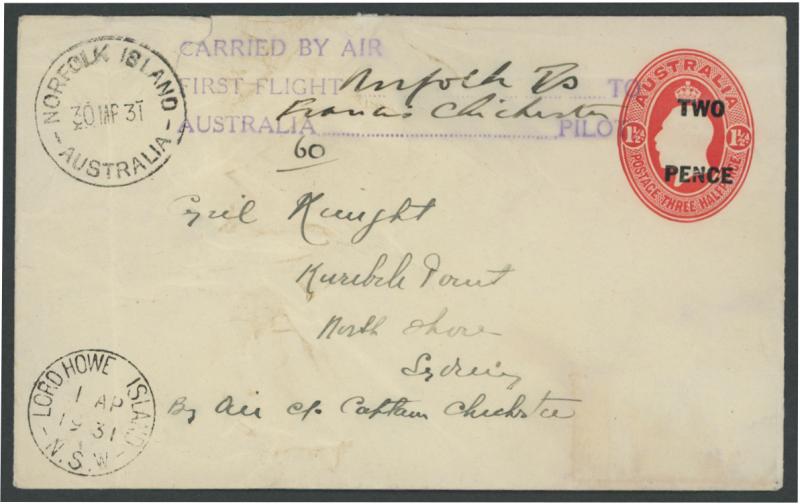 CARRIED BY AIR
FIRST FLIGHT Norfolk Is TO
Francis Chichester
AUSTRALIA PILOT
60
NORFOLK ISLAND
30 MR 31
AUSTRALIA
AUSTRALIA
TWO
1½ 1½
PENCE
POSTAGE THREE HALFPENCE
Cyril Knight
Kuribili Point
North Shore
Sydney
By Air c/o Captain Chichester
LORD HOWE ISLAND
1 AP
1931
N.S.W